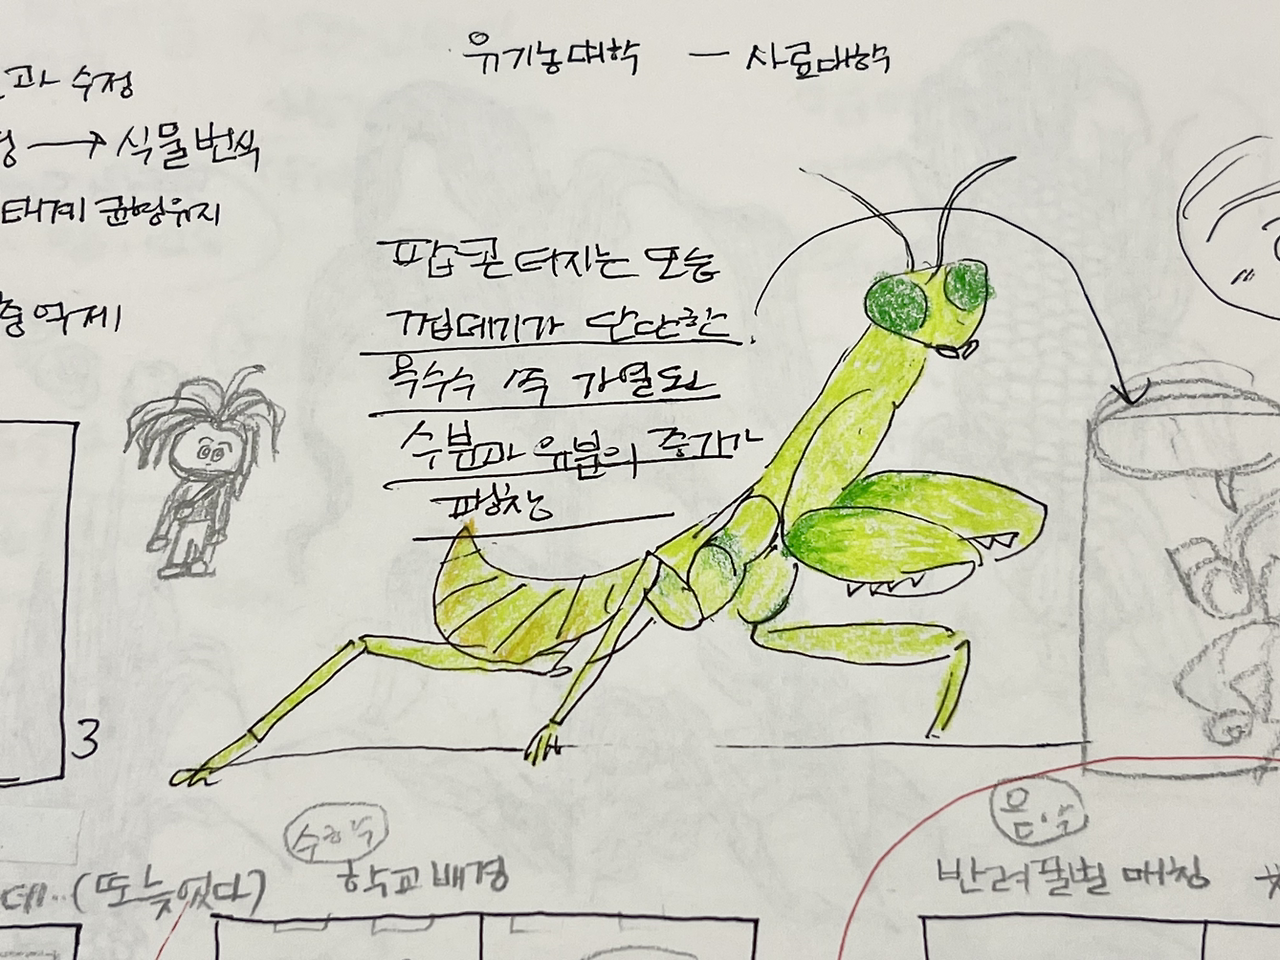 유기농대학 — 사료대학
과 수정
→ 식물번식
태계 균형유지
충억제
팝콘 터지는 모습
껍데기가 단단한
옥수수 쪽 가열된
수분과 유분의 증기가
팽창
3
수학
학교배경
데..(또늦었다)
음악
반려풀벌 매칭